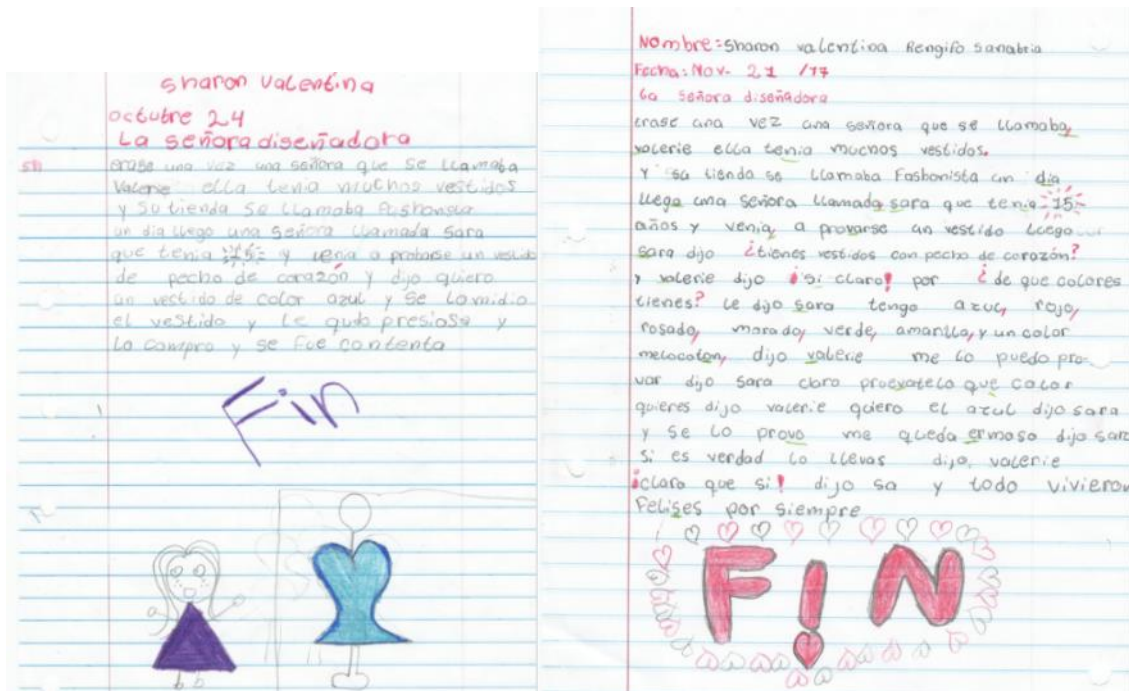 Sharon Valentina
octubre 24
La señora diseñadora
erase una vez una señora que se llamaba
Valerie ella tenia muchos vestidos
y su tienda se llamaba Fashonista
un dia llego una señora llamada Sara
que tenia 15 y venia a probarse un vestido
de pecho de corazón y dijo quiero
un vestido de color azul y se lo midio
el vestido y le qudo presioso y
lo compro y se fue contenta
Fin
Nombre: Sharon valentina Rengifo Sanabria
Fecha: Nov- 21 /17
La señora diseñadora
erase una vez una señora que se llamaba,
valerie ella tenia muchos vestidos.
Y su tienda se llamaba Fashonista un dia
llego una señora llamada sara que tenia 15
años y venia, a provarse un vestido luego
sara dijo ¿tienes vestidos con pecho de corazón?
y valerie dijo ¡si claro! por ¿de que colores
tienes? le dijo sara tengo azul, rojo,
rosado, morado, verde, amarillo, y un color
melocoton, dijo valerie me lo puedo pro-
var dijo sara claro pruevatelo que color
quieres dijo valerie quiero el azul dijo sara
y se lo provo me queda ermoso dijo sara
si es verdad lo llevas dijo, valerie
¡claro que si! dijo sa y todo vivieron
Felises por siempre
FIN